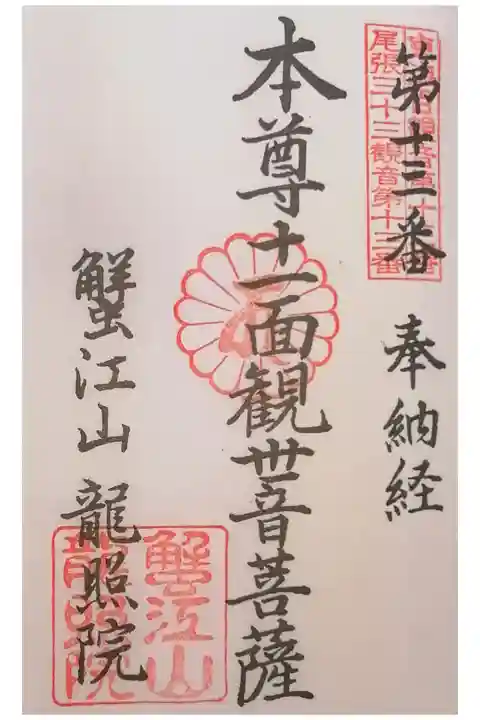 第十三番
奉納経
尾張三十三観音第十三番
本尊十一面観世音菩薩
蟹江山 龍照院
蟹江山
龍照院